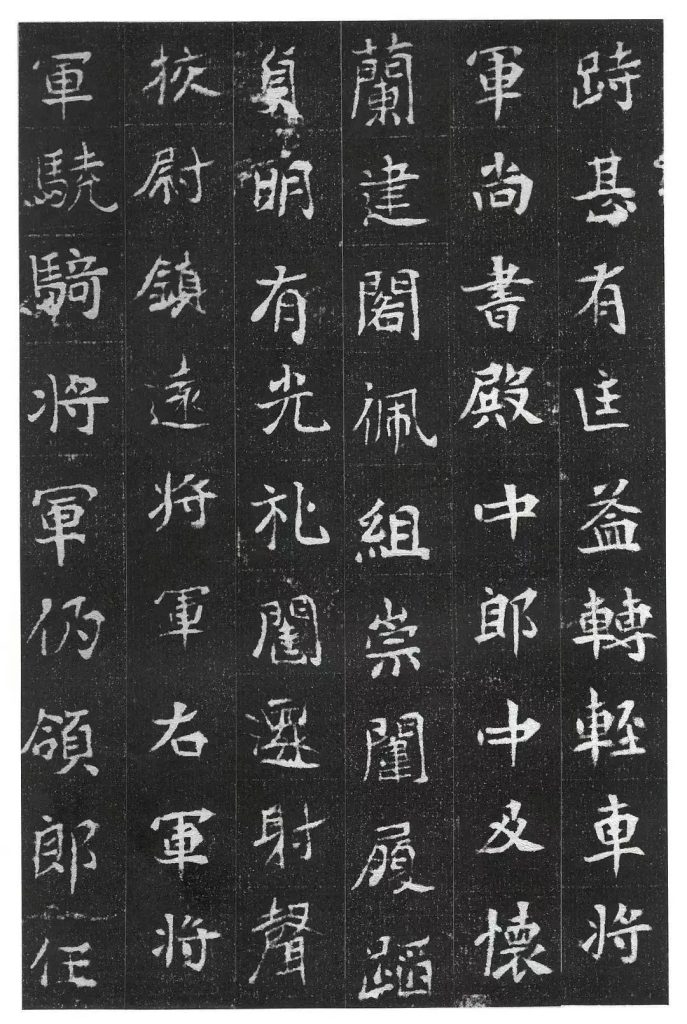 跱甚有匡益轉輕車將
軍尚書殿中郎中及懷
蘭建閣佩組崇闈履蹈
貞明有光禮闈遷射聲
挍尉鎮遠將軍右軍將
軍驍騎將軍仍領郎任